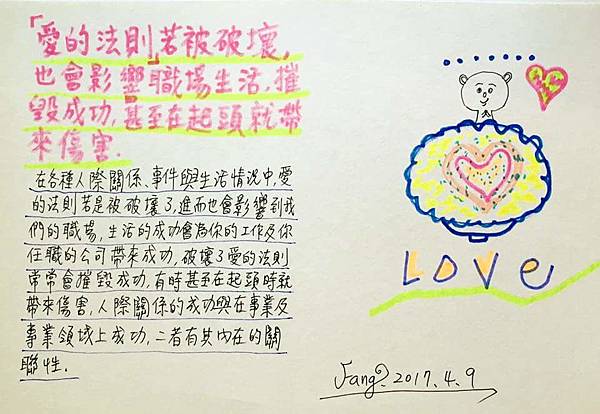 「愛的法則」若被破壞,
也會影響職場生活,摧
毀成功,甚至在起頭就帶
來傷害.
在各種人際關係、事件與生活情況中,愛
的法則若是被破壞了,進而也會影響到我
們的職場,生活的成功會為你的工作及你
任職的公司帶來成功,破壞了愛的法則
常常會摧毀成功,有時甚至在起頭時就
帶來傷害,人際關係的成功與在事業及
專業領域上成功,二者有其內在的關
聯性.
LOVe
Fang 2017.4.9